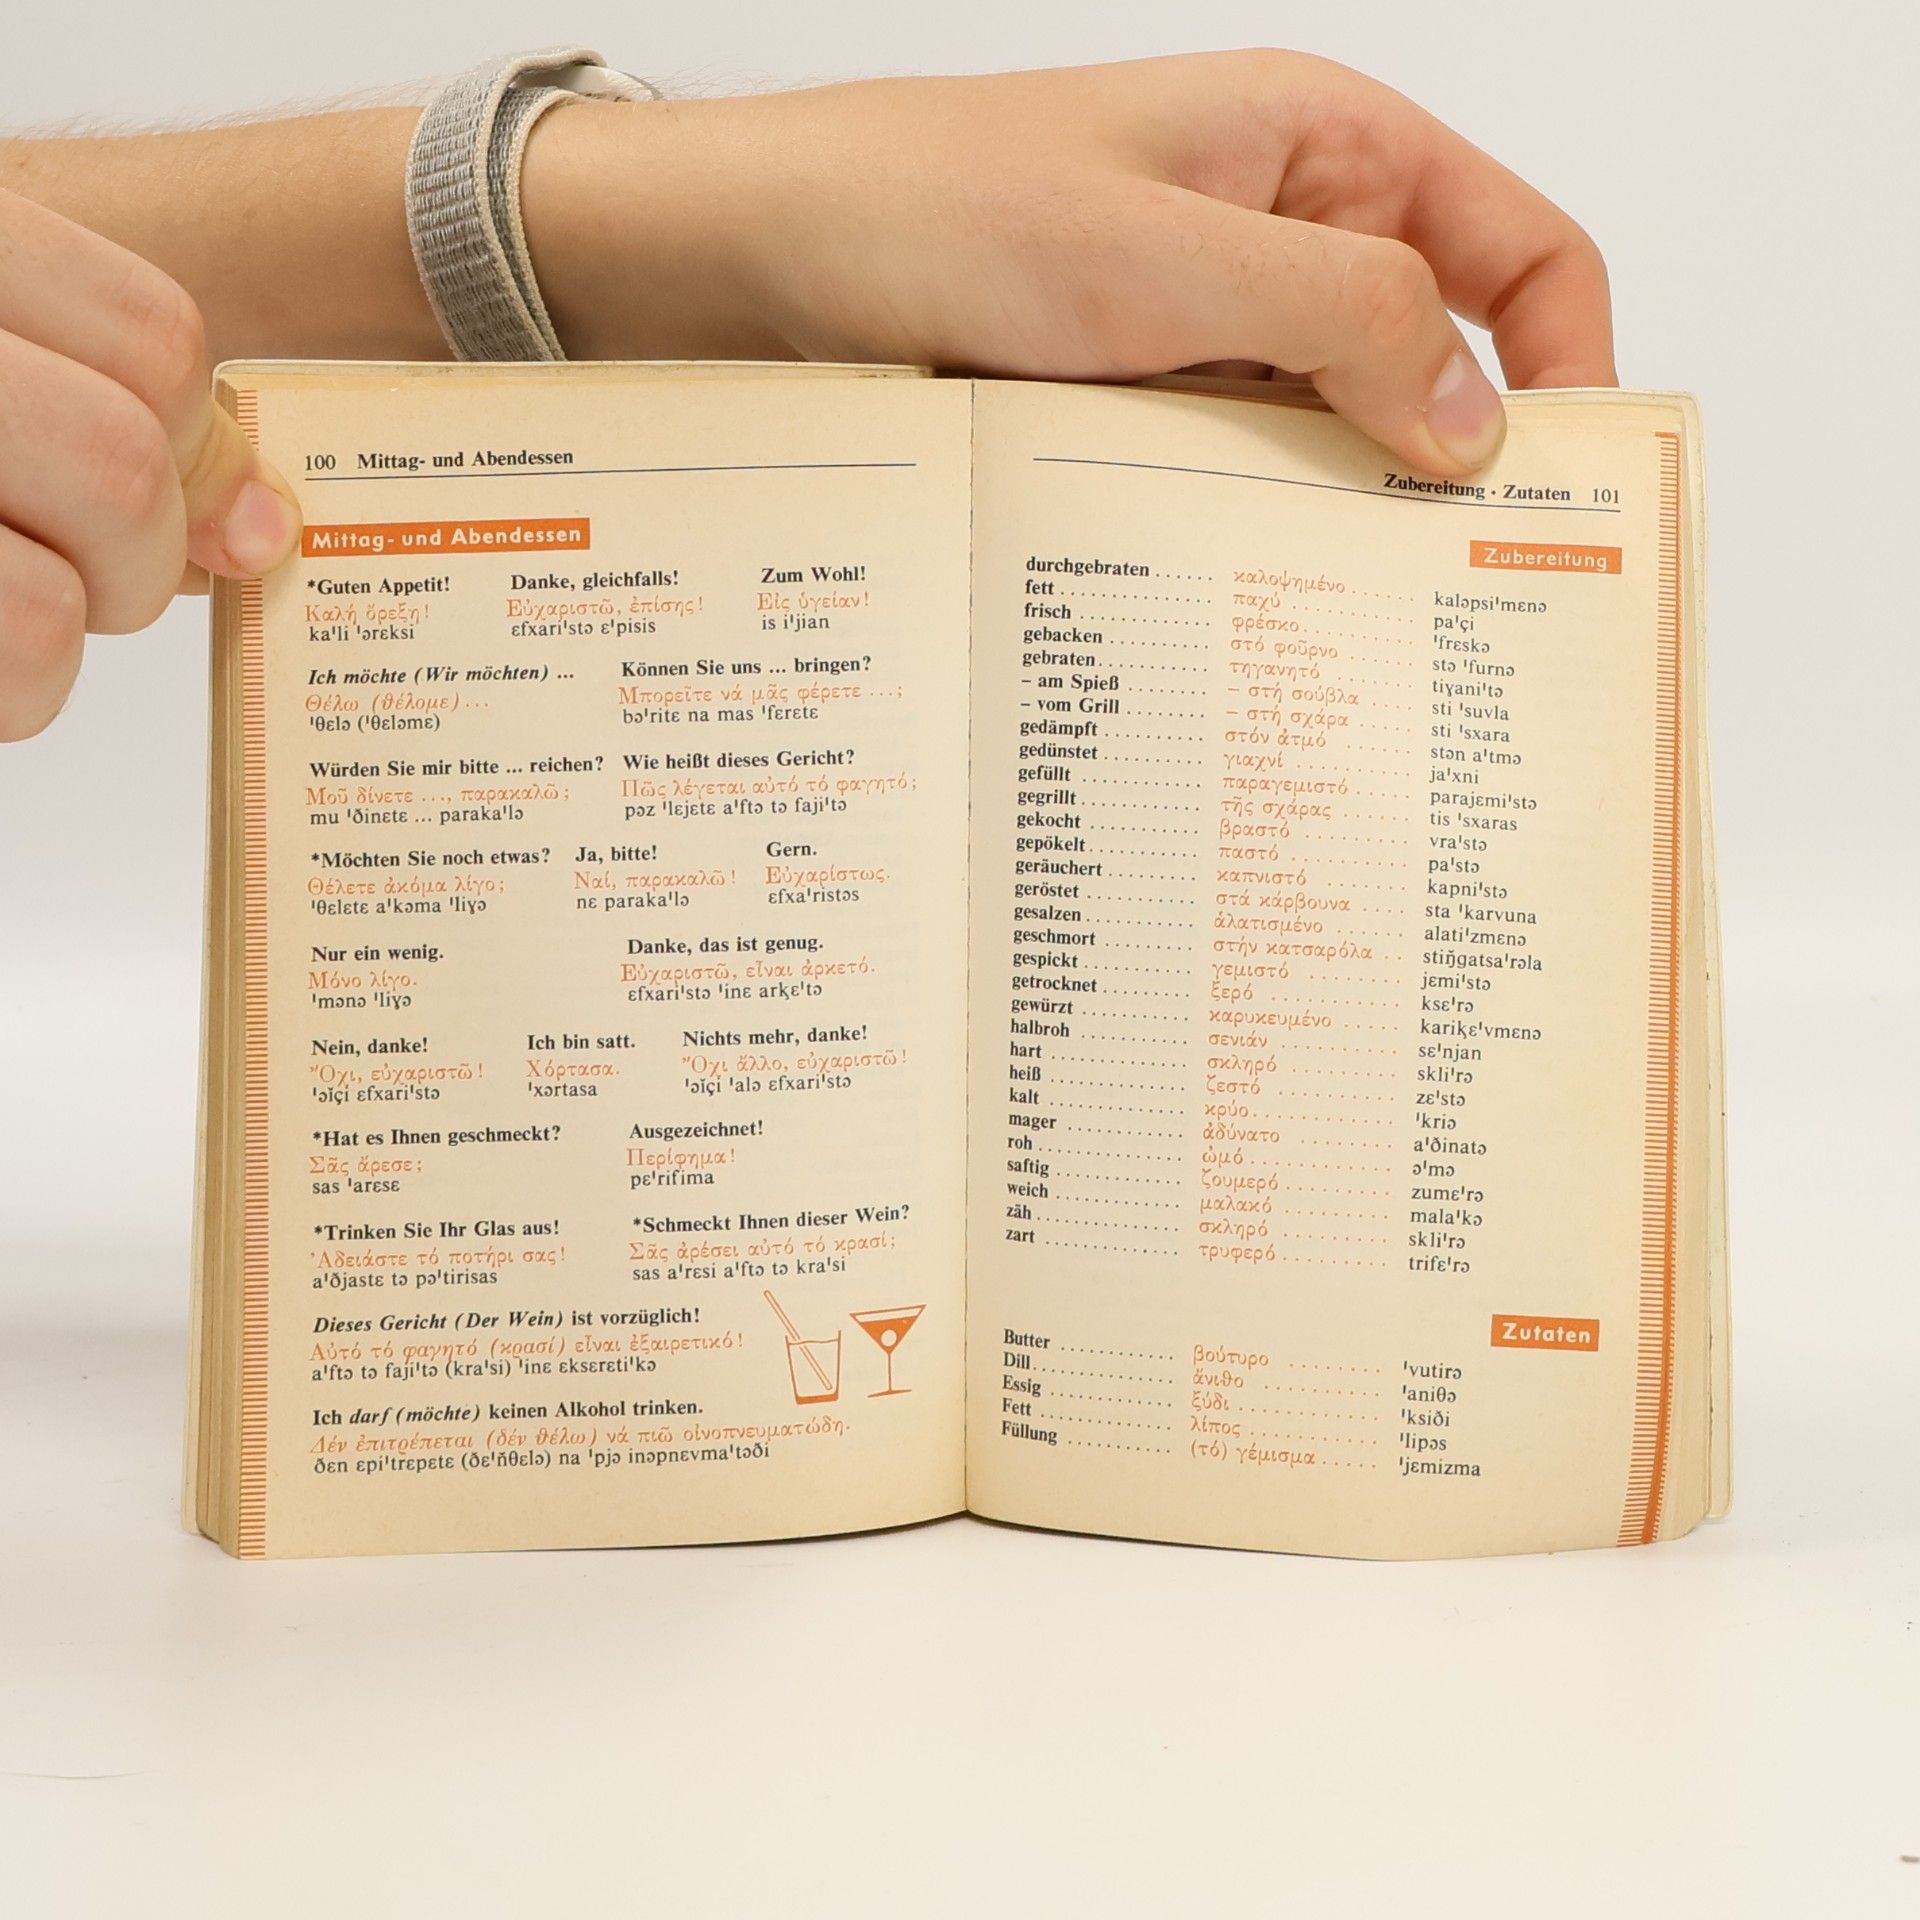 100 Mittag- und Abendessen
Mittag- und Abendessen
*Guten Appetit! Danke, gleichfalls! Zum Wohl!
Καλή ὄρεξη! Εὐχαριστῶ, ἐπίσης! Εἰς ὑγείαν!
ka'li 'ɔrɛksi ɛfxari'stɔ ɛ'pisis is i'jian
Ich möchte (Wir möchten) ... Können Sie uns ... bringen?
Θέλω (θέλομε)... Μπορεῖτε νά μᾶς φέρετε ...;
'θɛlɔ ('θɛlɔmɛ) bɔ'ritɛ na mas 'fɛrɛtɛ
Würden Sie mir bitte ... reichen? Wie heißt dieses Gericht?
Μοῦ δίνετε ..., παρακαλῶ; Πῶς λέγεται αὐτό τό φαγητό;
mu 'ðinɛtɛ ... paraka'lɔ pɔz 'lɛjɛtɛ a'ftɔ tɔ faji'tɔ
*Möchten Sie noch etwas? Ja, bitte! Gern.
Θέλετε ἀκόμα λίγο; Ναί, παρακαλῶ! Εὐχαρίστως.
'θɛlɛtɛ a'kɔma 'liɣɔ nɛ paraka'lɔ ɛfxa'ristɔs
Nur ein wenig. Danke, das ist genug.
Μόνο λίγο. Εὐχαριστῶ, εἶναι ἀρκετό.
'mɔnɔ 'liɣɔ ɛfxari'stɔ 'inɛ arķɛ'tɔ
Nein, danke! Ich bin satt. Nichts mehr, danke!
Ὄχι, εὐχαριστῶ! Χόρτασα. Ὄχι ἄλλο, εὐχαριστῶ!
'ɔĭçi ɛfxari'stɔ 'xɔrtasa 'ɔĭçi 'alɔ ɛfxari'stɔ
*Hat es Ihnen geschmeckt? Ausgezeichnet!
Σᾶς ἄρεσε; Περίφημα!
sas 'arɛsɛ pɛ'rifima
*Trinken Sie Ihr Glas aus! *Schmeckt Ihnen dieser Wein?
Ἀδειάστε τό ποτήρι σας! Σᾶς ἀρέσει αὐτό τό κρασί;
a'ðjastɛ tɔ pɔ'tirisas sas a'rɛsi a'ftɔ tɔ kra'si
Dieses Gericht (Der Wein) ist vorzüglich!
Αὐτό τό φαγητό (κρασί) εἶναι ἐξαιρετικό!
a'ftɔ tɔ faji'tɔ (kra'si) 'inɛ ɛksɛrɛti'kɔ
Ich darf (möchte) keinen Alkohol trinken.
Δέν ἐπιτρέπεται (δέν θέλω) νά πιῶ οἰνοπνευματώδη.
ðɛn ɛpi'trɛpɛtɛ (ðɛ'ňθɛlɔ) na 'pjɔ inɔpnɛvma'tɔði
Zubereitung · Zutaten 101
Zubereitung
durchgebraten ...... καλοψημένο ...... kalɔpsi'mɛnɔ
fett ............... παχύ ........... pa'çi
frisch ............. φρέσκο .......... 'frɛskɔ
gebacken .......... στό φοῦρνο ...... stɔ 'furnɔ
gebraten ........... τηγανητό ....... tiɣani'tɔ
– am Spieß ........ – στή σούβλα .... sti 'suvla
– vom Grill ........ – στή σχάρα .... sti 'sxara
gedämpft .......... στόν ἀτμό ...... stɔn a'tmɔ
gedünstet .......... γιαχνί .......... ja'xni
gefüllt ............ παραγεμιστό ..... parajɛmi'stɔ
gegrillt ............ τῆς σχάρας ...... tis 'sxaras
gekocht ........... βραστό ......... vra'stɔ
gepökelt ........... παστό .......... pa'stɔ
geräuchert ......... καπνιστό ....... kapni'stɔ
geröstet ........... στά κάρβουνα .... sta 'karvuna
gesalzen ........... ἁλατισμένο ..... alati'zmɛnɔ
geschmort ......... στήν κατσαρόλα .. stiňgatsa'rɔla
gespickt ........... γεμιστό ........ jɛmi'stɔ
getrocknet ......... ξερό ........... ksɛ'rɔ
gewürzt ........... καρυκευμένο ..... kariķɛ'vmɛnɔ
halbroh ........... σενιάν .......... sɛ'njan
hart .............. σκληρό .......... skli'rɔ
heiß .............. ζεστό ........... zɛ'stɔ
kalt .............. κρύο ............ 'kriɔ
mager ............ ἀδύνατο ........ a'ðinatɔ
roh ............... ὠμό ............ ɔ'mɔ
saftig ............. ζουμερό ......... zumɛ'rɔ
weich ............. μαλακό ......... mala'kɔ
zäh ............... σκληρό ......... skli'rɔ
zart ............... τρυφερό ........ trifɛ'rɔ
Zutaten
Butter ............ βούτυρο ........ 'vutirɔ
Dill ............... ἄνιθο .......... 'aniθɔ
Essig ............. ξύδι ............ 'ksiði
Fett .............. λίπος ........... 'lipɔs
Füllung ........... (τό) γέμισμα ..... 'jɛmizma